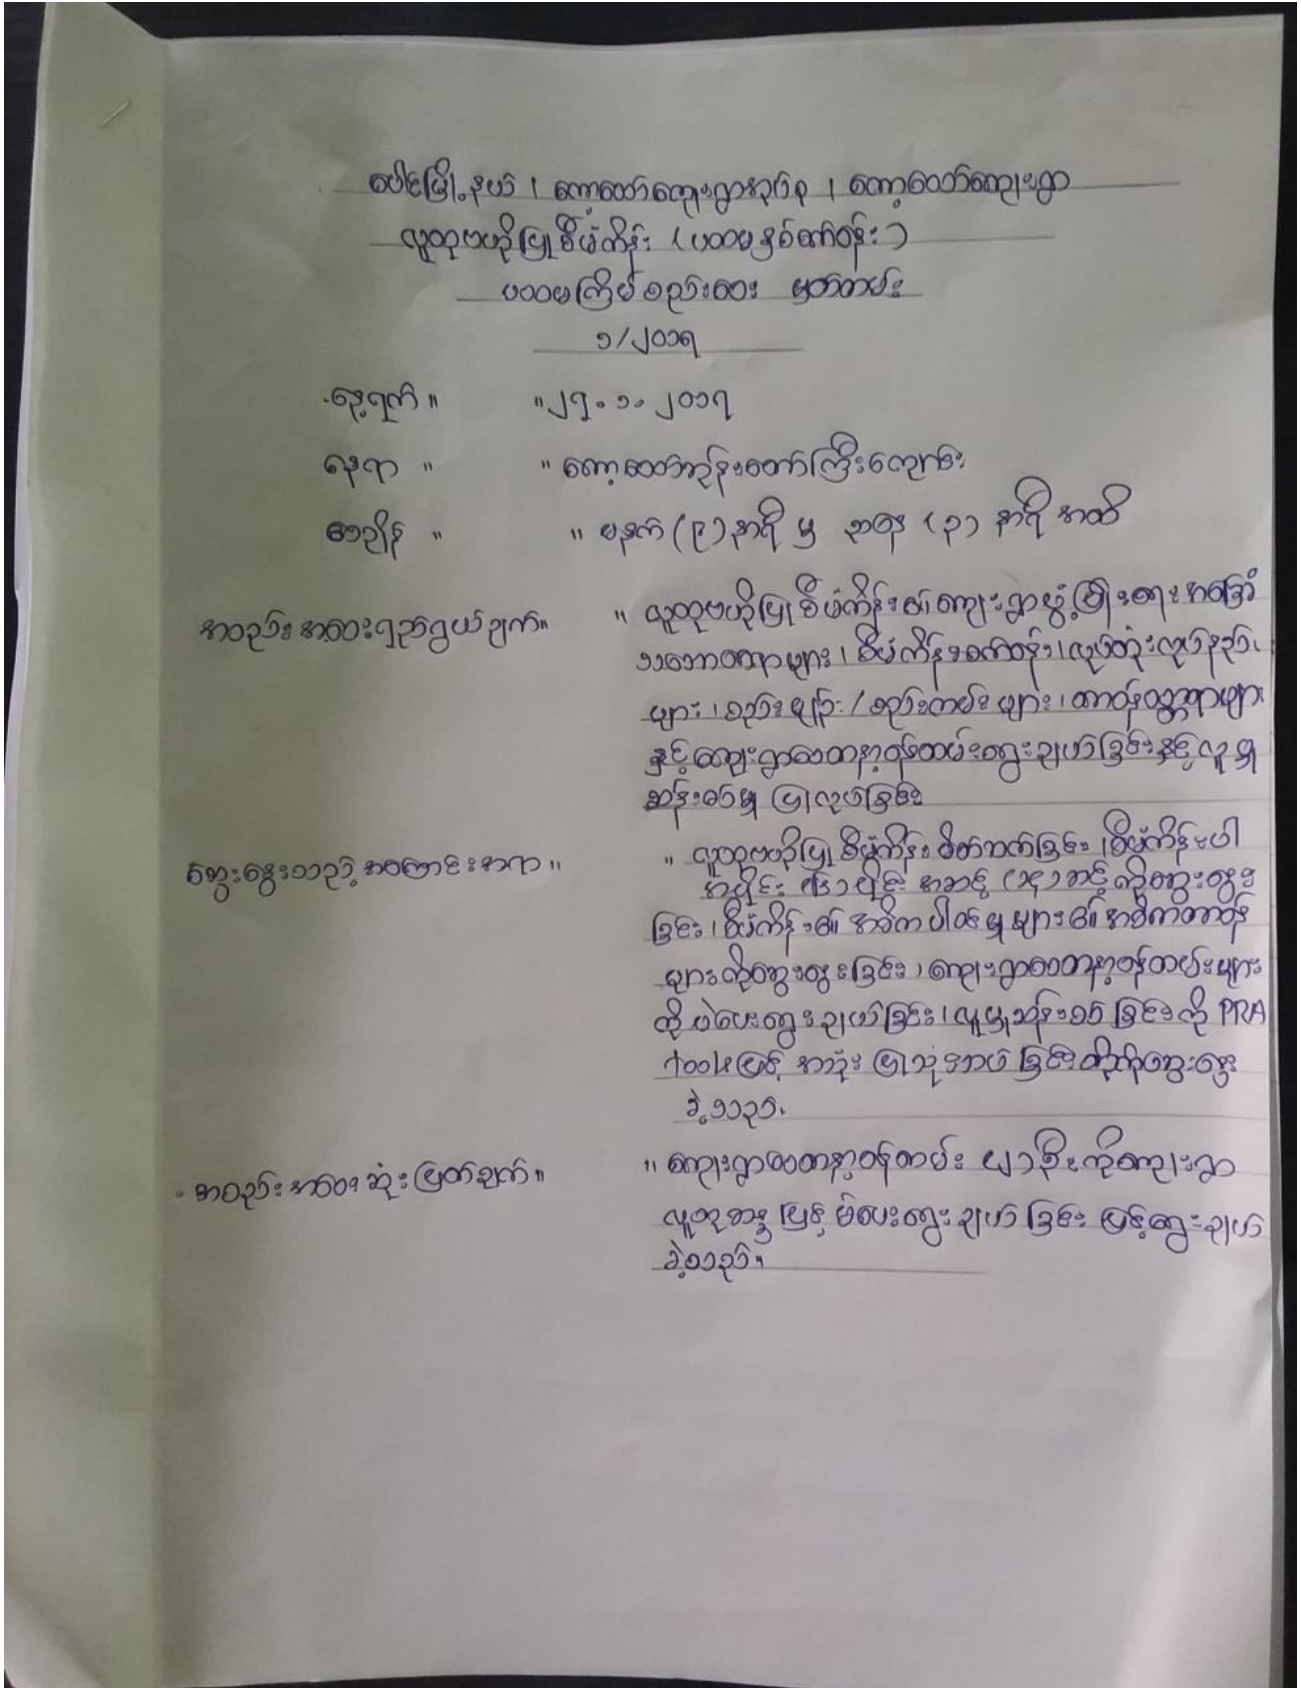 ပေါင်မြို့နယ်၊ ကော့သော်ကျေးရွာအုပ်စု၊ ကော့သော်ကျေးရွာ
လူထုဗဟိုပြုစီမံကိန်း (ပထမနှစ်စက်ဝန်း)
ပထမအကြိမ် စည်းဝေး မှတ်တမ်း
၁/၂၀၁၇
နေ့ရက် ။ ။ ၂၅.၁.၂၀၁၇
နေရာ ။ ။ ဘုန်းတော်ကြီးကျောင်း
အချိန် ။ ။ မနက် (၉) နာရီ မှ ညနေ (၃) နာရီ အထိ
အစည်းအဝေးရည်ရွယ်ချက်။ ။ လူထုဗဟိုပြုစီမံကိန်း၏ ကျေးရွာဖွံ့ဖြိုးရေး အခြေခံ
သဘောတရားများ၊ စီမံကိန်းစက်ဝန်း၊ လုပ်ထုံးလုပ်နည်း
များ၊ စည်းမျဉ်း/စည်းကမ်းများ၊ တာဝန်ဝတ္တရားများ
နှင့် ကျေးရွာစေတနာ့ဝန်ထမ်းရွေးချယ်ခြင်းနှင့် လူမှု
ဆန်းစစ်မှု ပြုလုပ်ခြင်း
ဆွေးနွေးသည့်အကြောင်းအရာ ။ ။ လူထုဗဟိုပြုစီမံကိန်း မိတ်ဆက်ခြင်း၊ စီမံကိန်းပါ
အပိုင်း (၆) ပိုင်း အဆင့် (၁၄) ဆင့် ကိုဆွေးနွေး
ခြင်း၊ စီမံကိန်း၏ အဓိက ပါဝင်မှုများ၏ အဓိကတာဝန်
များကိုဆွေးနွေးခြင်း၊ ကျေးရွာစေတနာ့ဝန်ထမ်းများ
ကို မဲပေးရွေးချယ်ခြင်း၊ လူမှုဆန်းစစ်ခြင်းကို PRA
tools ဖြင့် အသုံးပြုသုံးသပ်ခြင်း တို့ကိုဆွေးနွေး
ခဲ့သည်။
အစည်းအဝေးဆုံးဖြတ်ချက် ။ ။ ကျေးရွာစေတနာ့ဝန်ထမ်း ဦးကိုကျေးရွာ
လူထုဆန္ဒဖြင့် မဲပေးရွေးချယ်ခြင်း ဖြင့်ရွေးချယ်
ခဲ့သည်။